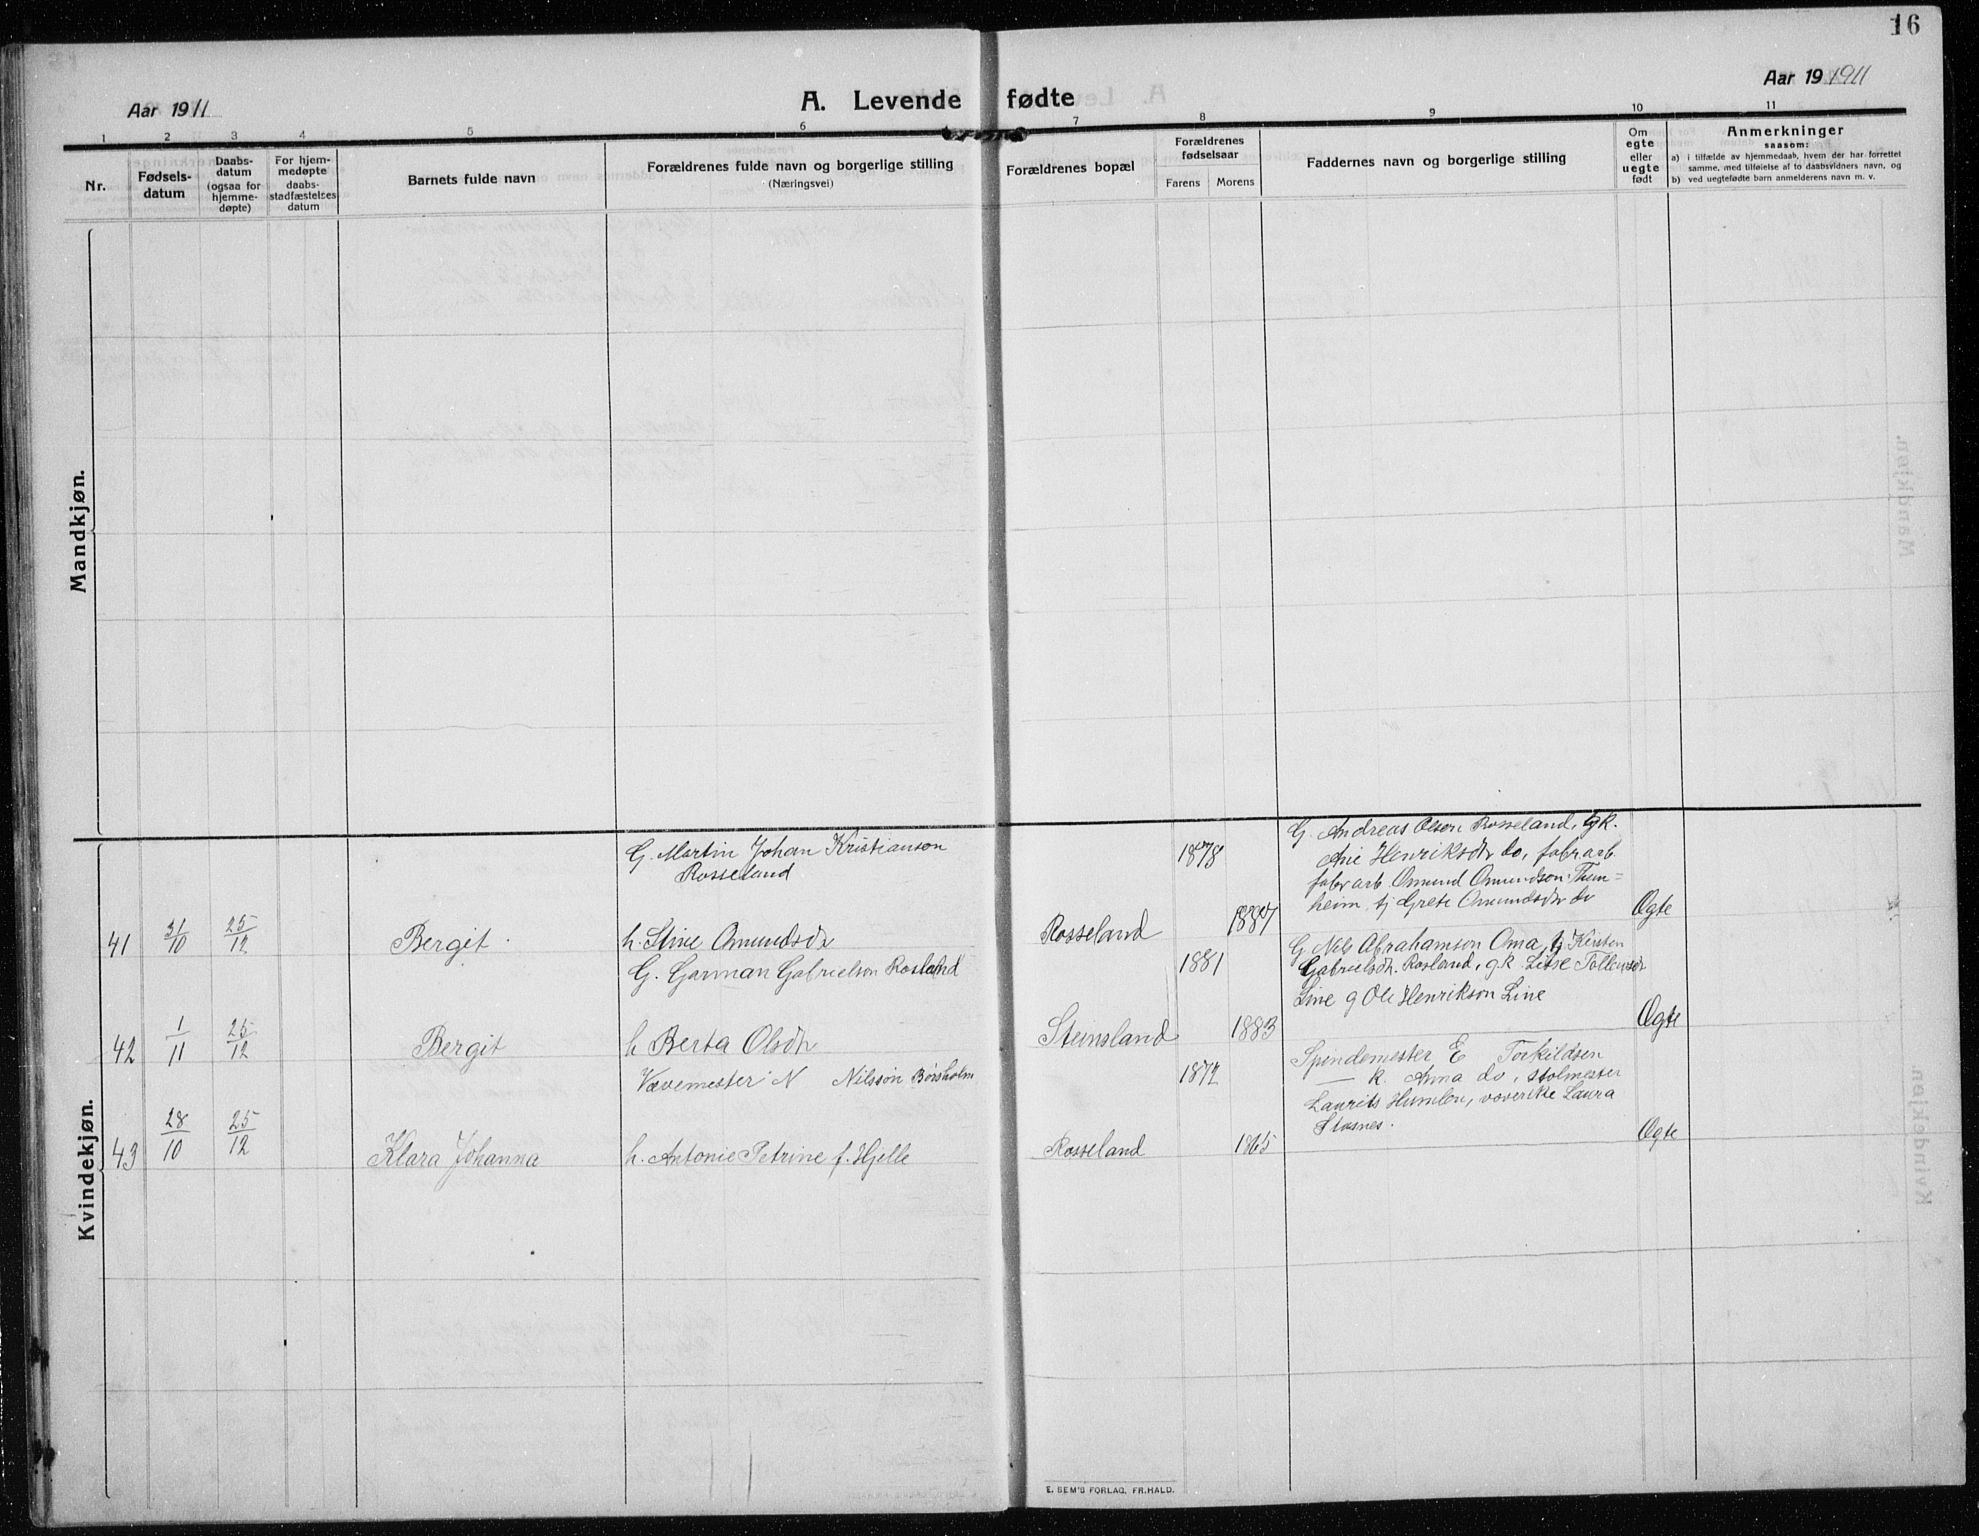 16
Aar 1911
A. Levende fødte
Aar 19 1911
1 2 3 4 5 6 7 8 9 10 11
Nr.
Fødsels-
datum
Daabs-
datum
(ogsaa for
hjemme-
døpte)
For hjem-
medøpte
daabs-
stadfæstelses
datum
Barnets fulde navn
Forældrenes fulde navn og borgerlige stilling
(Næringsvei)
Forældrenes bopæl
Forældrenes
fødselsaar
Farens Morens
Faddernes navn og borgerlige stilling
Om
egte
eller
uegte
født
Anmerkninger
saasom:
a) i tilfælde av hjemmedaab, hvem der har forrettet
samme, med tilføielse af to daabsvidners navn, og
b) ved uegtefødte barn anmelderens navn m. v.
Mandkjøn.
Kvindekjøn.
41 31/10 25/12 Bergit.
G. Martin Johan Kristianson
Rosseland
h. Stine Omundsdtr
Rosseland
1878
1887
G. Andreas Olson Rosseland, gk.
Ane Henriksdtr do, fabrarb
fabrarb Omund Omundson Thun=
heim, tj Grete Omundsdtr do
Ægte
42 1/11 25/12 Bergit
G. Garman Gabrielson Rosland
h Berta Olsdtr
Steinsland
1881
1883
G Nils Abrahamson Oma, tj Kirsten
Gabrielsdtr. Rosland, gk. Litse Tollevsdtr
Line g Ole Henrikson Line
Ægte
43 28/10 25/12 Klara Johanna
Vævemester N Nilsson Børsholm
h. Antonie Petrine f. Hjelle
Rosseland
1872
1865
Spindemester E Torkildsen
— k. Anna do, stolmester
Laurits Humlen, væverske Laura
Stosnes.
Ægte
E. SEM'S FORLAG, FR.HALD.